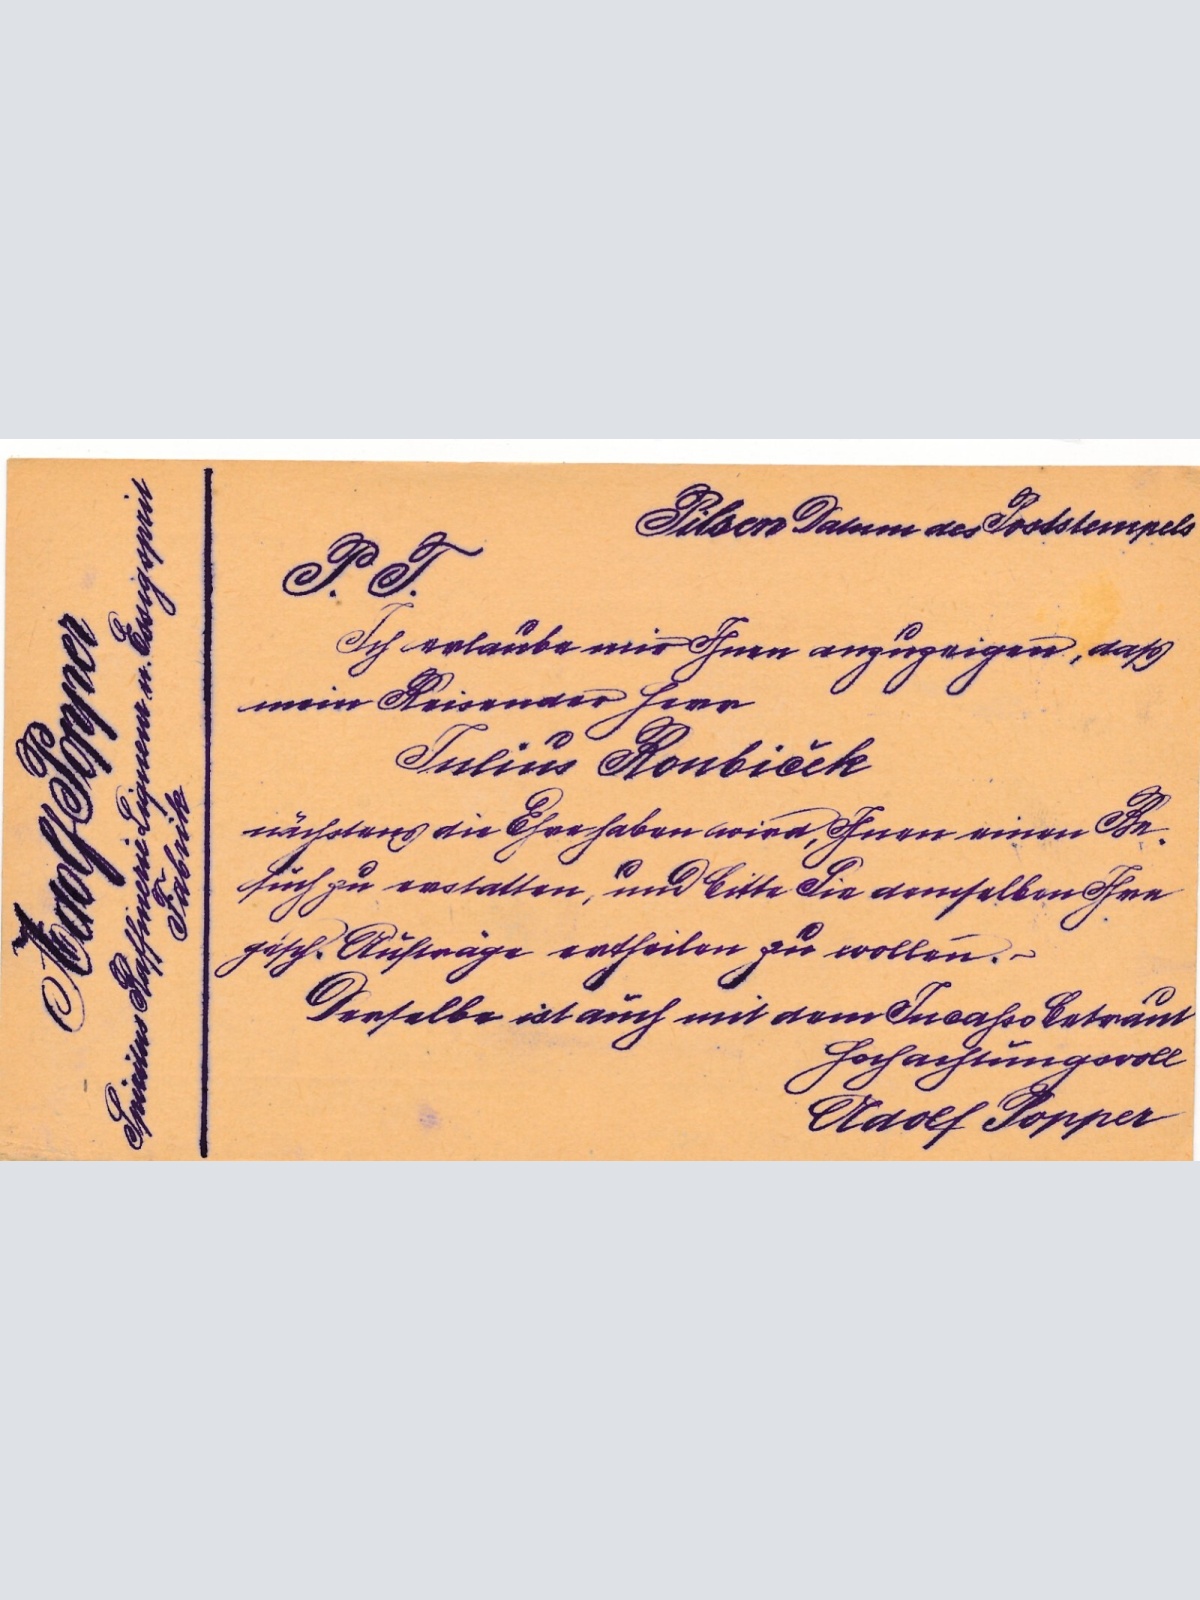 Adolf Popper
Spiritus Raffinerie Liqueur u. Essigsprit
Fabrik
Pilsen Datum des Poststempels
P. T.
Ich erlaube mir Ihnen anzuzeigen, daß
mein Reisender Herr
Julius Roubiček
nächstens die Ehre haben wird, Ihnen einen Be-
such zu erstatten, und bitte Sie demselben Ihre
gesch. Aufträge ertheilen zu wollen.-
Derselbe ist auch mit dem Incasso betraut
Hochachtungsvoll
Adolf Popper